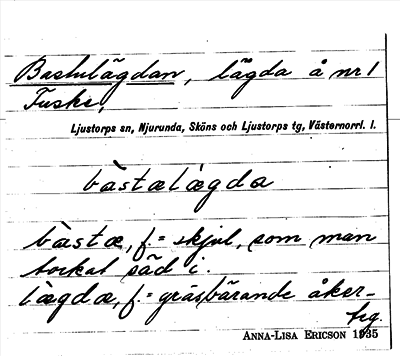 Bastulägdan, lägda å nr 1
Fuske,
Ljustorps sn, Njurunda, Sköns och Ljustorps tg, Västernorrl. l.
bàstælægda
bàstæ, f. = skjul, som man
torkat säd i.
lægda, f. = gräsbärande åker-
teg.
ANNA-LISA ERICSON 1935